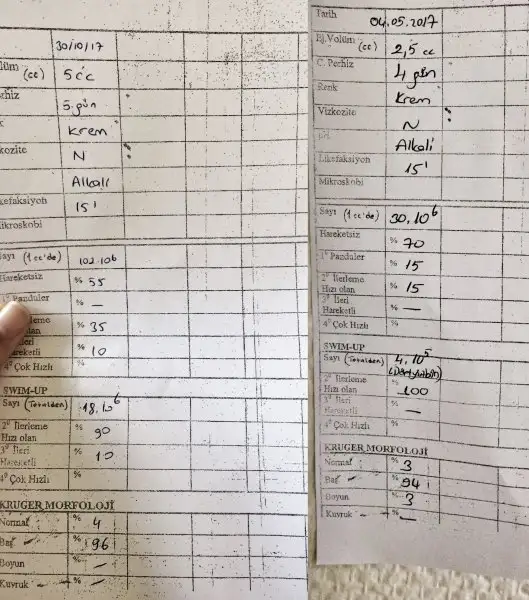 30/10/17
(cc) 5 cc
5. gün
Krem
kozite N
Alkali
kefaksiyon 15'
ikroskobi
ayı (1 cc'de) 102.10⁶
Hareketsiz % 55
1⁰ Panduler % —
% 35
% 10
4⁰ Çok Hızlı %
SWIM-UP
Sayı (Totalden) 18.10⁶
2⁰ İlerleme
Hızı olan % 90
3⁰ İleri
Hareketli % 10
4⁰ Çok Hızlı %
KRUGER MORFOLOJİ
Normal % 4
Baş % 96
Boyun % —
Kuyruk % —
Tarih 04.05.2017
Ej.Volüm (cc) 2,5 cc
C. Perhiz 4 gün
Renk Krem
Vizkozite N
PH. Alkali
Likefaksiyon 15'
Mikroskobi
Sayı (1 cc'de) 30.10⁶
Hareketsiz % 70
1⁰ Panduler % 15
2⁰ İlerleme
Hızı olan % 15
3⁰ İleri
Hareketli % —
4⁰ Çok Hızlı %
SWIM-UP
Sayı (Totalden) 4.10⁵
2⁰ İlerleme
Hızı olan % 100
3⁰ İleri
Hareketli % —
4⁰ Çok Hızlı %
KRUGER MORFOLOJİ
Normal % 3
Baş % 94
Boyun % 3
Kuyruk % —